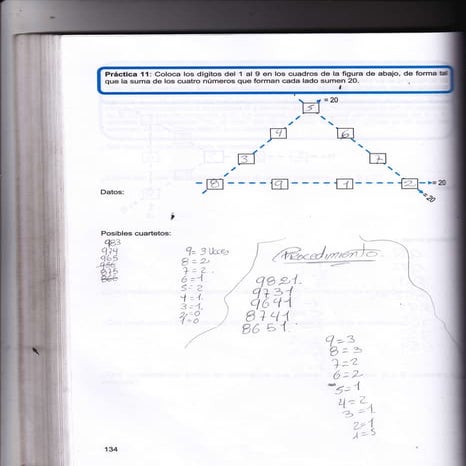 Práctica 11: Coloca los dígitos del 1 al 9 en los cuadros de la figura de abajo, de forma tal
que la suma de los cuatro números que forman cada lado sumen 20.
5 = 20
4 6
3 7
8 9 1 2 = 20
= 20
Datos:
Posibles cuartetos:
983
974
965
875
9 = 3 Veces
8 = 2
7 = 2
6 = 1
5 = 2
4 = 1
3 = 1
2 = 0
1 = 0
Procedimiento
9821
9731
9641
8741
8651
9 = 3
8 = 3
7 = 2
6 = 2
5 = 1
4 = 2
3 = 1
2 = 1
1 = 5
134